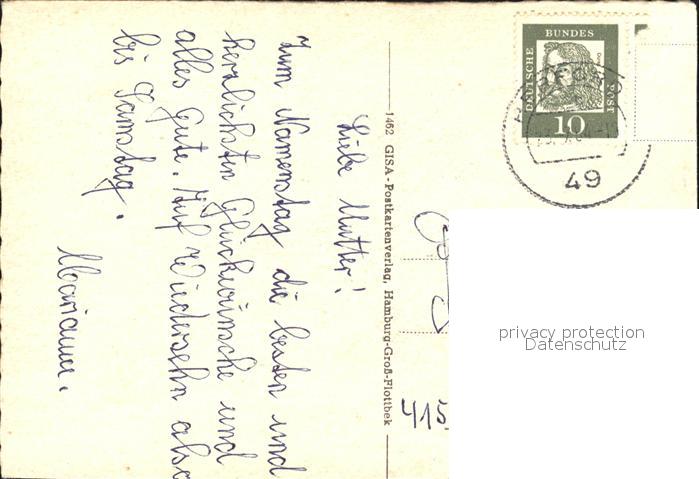 Liebe Mutter!
Zum Namenstag die besten und
herzlichsten Glückwünsche und
alles Gute. Auf Wiedersehn also
bis Samstag.
Marianne.
1462 GISA-Postkartenverlag, Hamburg-Groß-Flottbek
DEUTSCHE
BUNDES
POST
10
49
415
privacy protection
Datenschutz